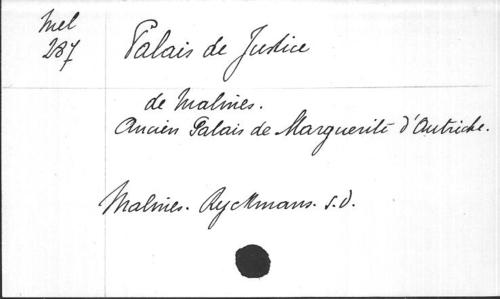 Mel
287
Palais de Justice
de Malines.
Ancien Palais de Marguerite d'Autriche.
Malines. Ryckmans. s.d.